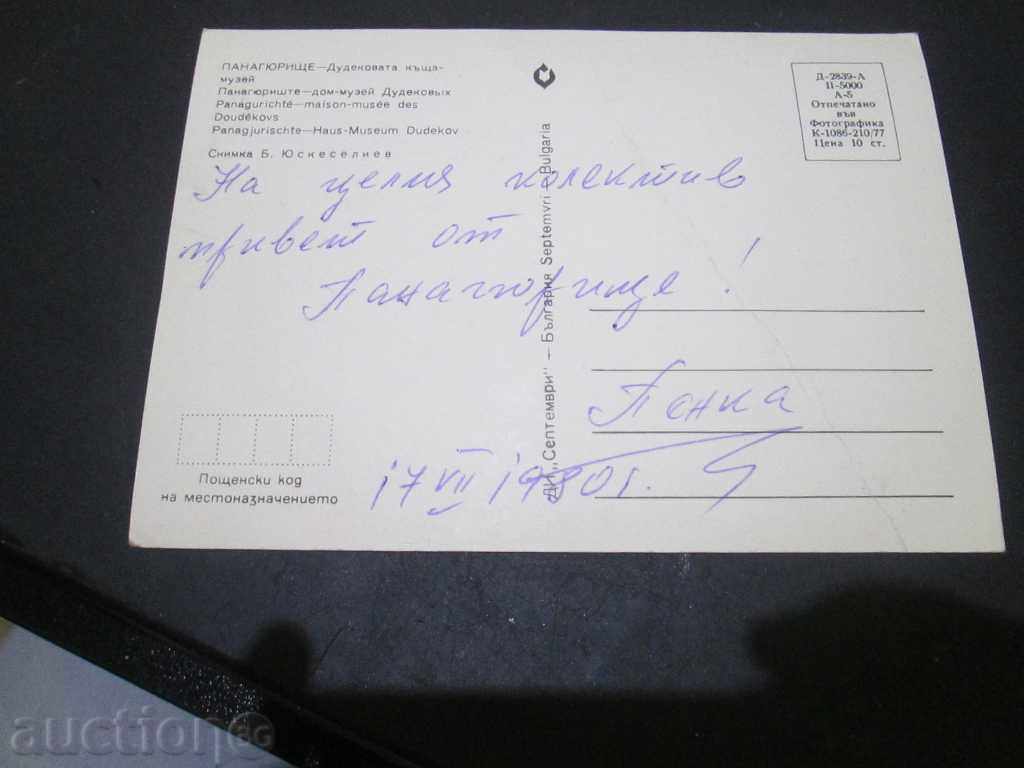 ПАНАГЮРИЩЕ—Дудековата къща-
музей
Панагюриште—дом-музей Дудековых
Panagurichté—maison-musée des
Doudékovs
Panagjurischte—Haus-Museum Dudekov
Снимка Б. Юскеселиев
Д-2839-А
II-5000
А-5
Отпечатано
във
Фотографика
К-1086-210/77
Цена 10 ст.
ДИ „Септември" — България Septemvri — Bulgaria
На целия колектив
привет от
Панагюрище!
Пенка
17 VII 1980 г.
Пощенски код
на местоназначението
auction BG